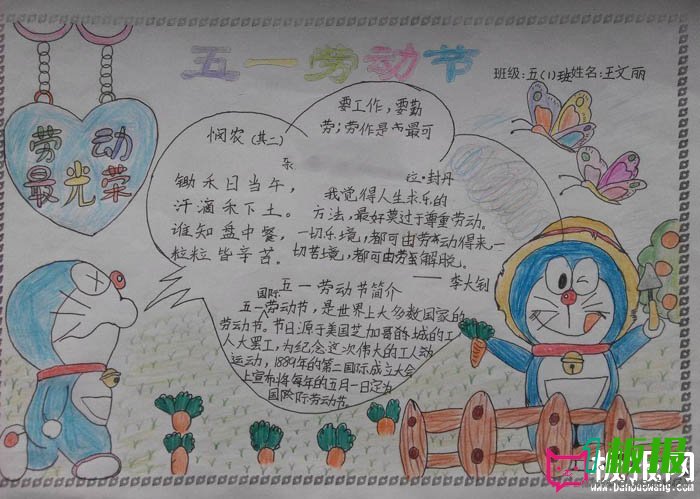 五一劳动节
班级:五(1)班姓名:王文丽
劳动
最光荣
要工作,要勤
劳:劳作是
最可
悯农(其二)
拉·封丹
锄禾日当午,
汗滴禾下土。
谁知盘中餐,
粒粒皆辛苦。
我觉得人生求乐的
方法,最好莫过于尊重劳动。
一切乐境,都可由劳动得来,一
切苦境,都可由劳动解脱。
——李大钊
国际五一劳动节简介
五一劳动节,是世界上大多数国家的
劳动节。节日源于美国芝加哥城的工
人大罢工,为纪念这次伟大的工人
运动,1889年的第二国际成立大会
上宣布将每年的五月一日定为
国际劳动节。
板报网
www.banbaowang.com